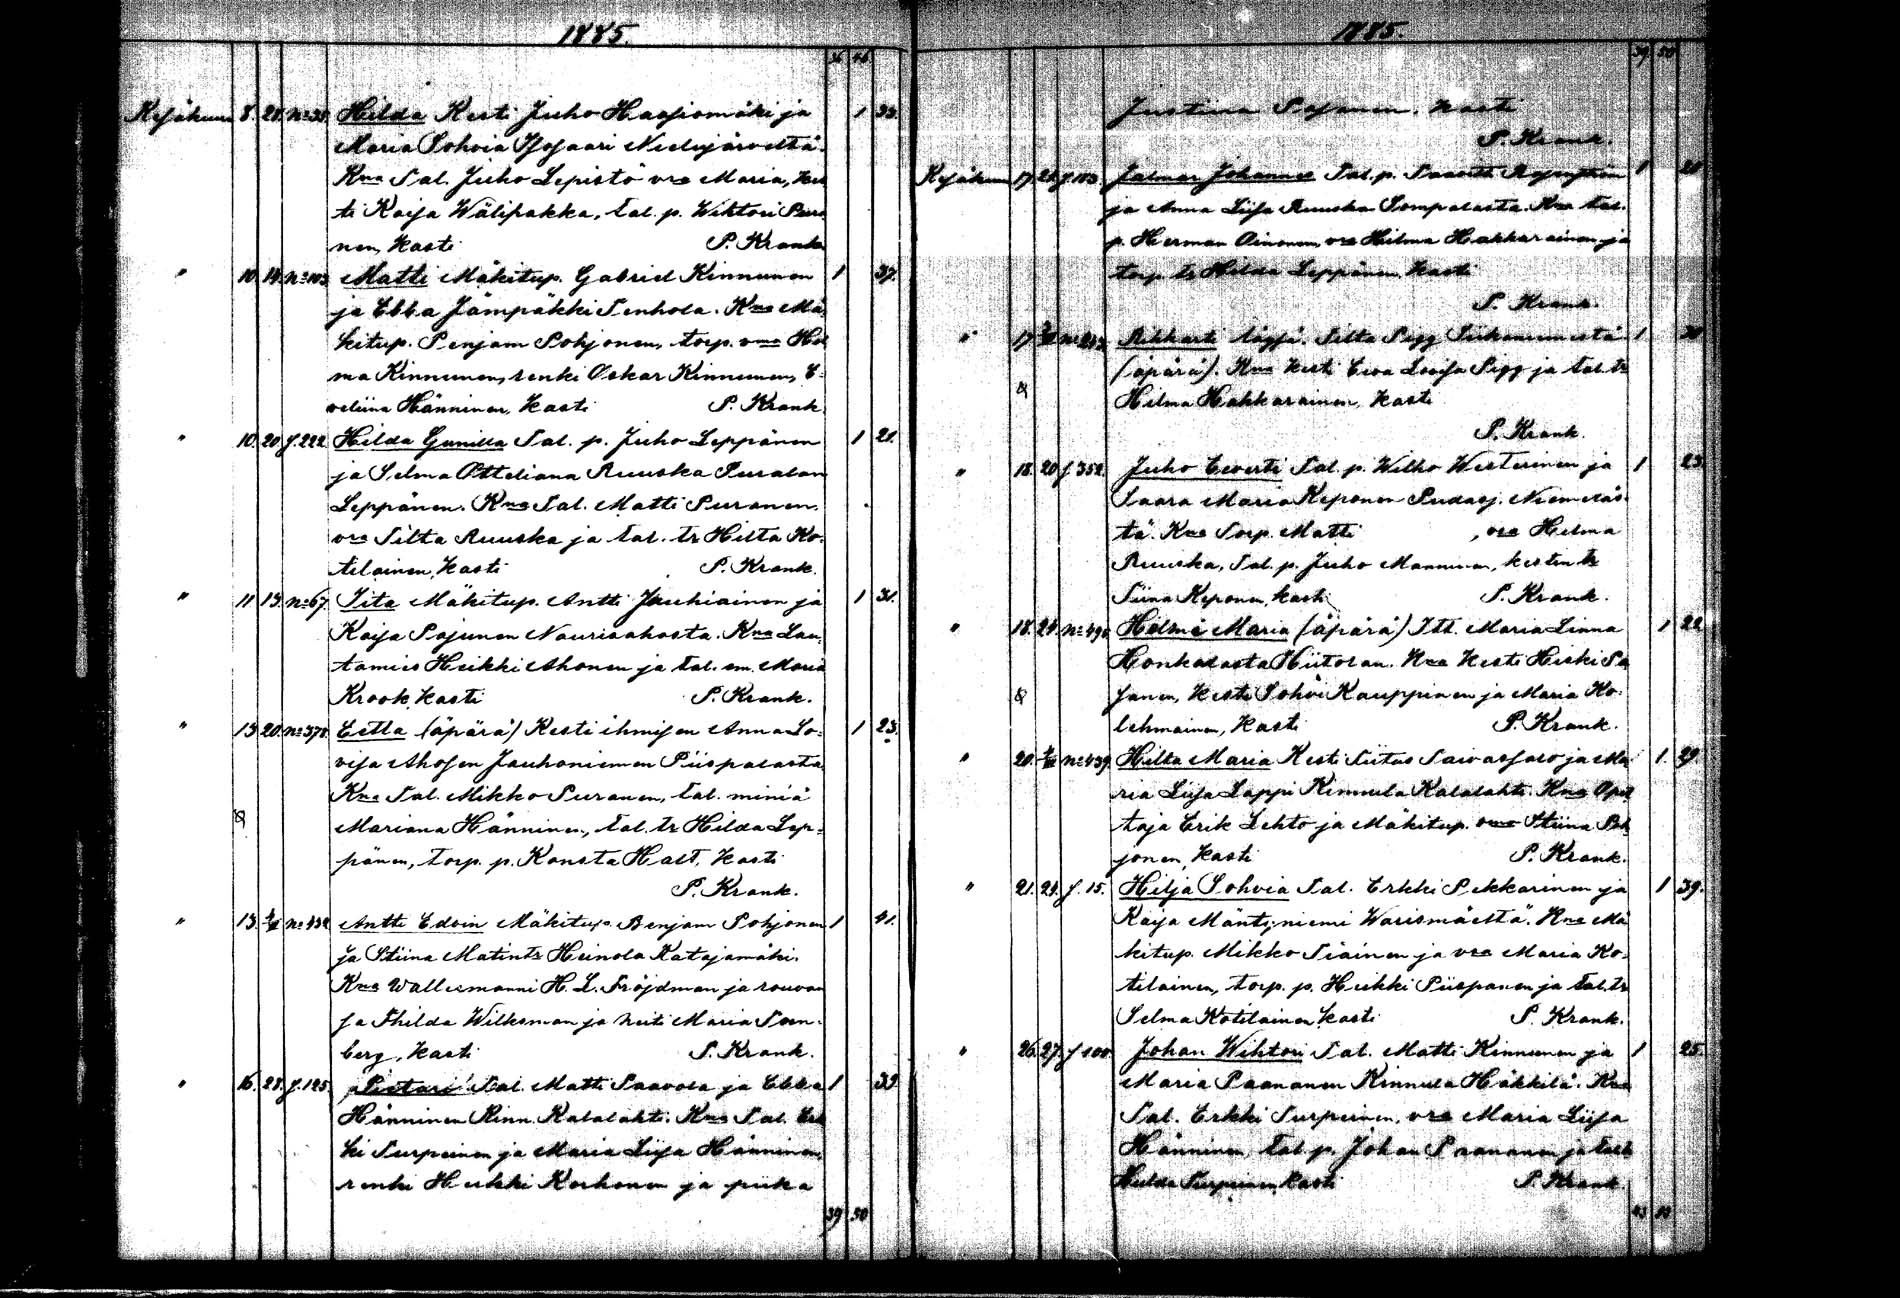 1885.
36 46
Kesäkuu 8. 28. n:o 38. Hilda Kesti Juho Haapiomäki ja 1 33.
Maria Sohvia Nieliijärveltä.
Kna Tal. Juho Lepistö vso Maria, kes
ti Kaija Wälipakka, tal. p. Wihtori Pura
nen, kasti P. Krank
" 10. 14. n:o 103. Matti Mäkitup. Gabriel Kinnunen 1 37.
ja Ebba Jämpäkki Tenhola. Kna Mä
kitup. Penjam Pohjonen, torp. vmo Hel
ma Kinnunen, renki Oskar Kinnunen, E-
veliina Hänninen, kasti P. Krank.
" 10. 20. f. 222. Hilda Gunilla Tal. p. Juho Leppänen 1 21.
ja Selma Otteliana Ruuska Puralan
Leppänen. Kna Tal. Matti Puranen.
vso Tilta Ruuska ja tal. tr Hilta Ko-
tilainen, kasti P. Krank.
" 11. 13. n:o 67. Iita Mäkitup. Antti Jauhiainen ja 1 31.
Kaija Pajunen Naurisahosta. Kna Lau-
tamies Heikki Ahonen ja tal. em. Maria
Krook, kasti P. Krank.
" 13. 20. n:o 378. Eetla (äpärä) Kesti ihmisen Anna Lo- 1 23.
visa Ahosen Jauhoniemen Piispalasta.
Kna Tal. Mikko Puranen, tal. miniä
Mariana Hänninen, tal. tr Hilda Lep-
pänen, torp. p. Konsta Halt, kasti
P. Krank.
" 13. n:o 432 Antti Edvin Mäkitup. Benjam Pohjonen 1 41.
ja Stiina Matintr Heinola Katajamäki.
Kna Wallesmanni H. L. Fröjdman ja rouvan
sa Thilda Wilksman ja neiti Maria Torn-
berg, kasti P. Krank.
" 16. 28. f. 125. Pietari Tal. Matti Saavola ja Ebba 1 39.
Hänninen Kinn. Kalalahti. Kna Tal. Erk
ki Turpeinen ja Maria Liisa Hänninen,
renki Heikki Korhonen ja piika
39 50
1885.
39 50
Justiina Pajanen, kasti
P. Krank.
Kesäkuu 17. 21. f. 103. Jalmar Johannes Tal. p. 1
ja Anna Liisa Ruuska Sompalasta. Kna tal.
p. Herman Oinonen, vso Hilma Hakkarainen ja
torp. tr Hilda Leppänen, kasti
P. Krank.
" 17. n:o 243. Rikhart löysä. Tilta Pigg Tiikanniemestä 1
(äpärä). Kna Kesti Eeva Loviisa Pigg ja tal. tr
Helma Hakkarainen, kasti
P. Krank.
" 18. 20. f. 352. Juho Eeverti Tal. p. Wilho Westerinen ja 1 23.
Saara Maria Keponen Pudasj. Niemeläs-
tä. Kna Torp. Matti , vso Helma
Ruuska, Tal. p. Juho Manninen, kesten tr
Tiina Keponen, kasti P. Krank.
" 18. 24. n:o 490 Helmi Maria (äpärä) Itt. Maria Liana 1 22
Honkalasta Hiitolan. Kna Kesti Heiki Pa
janen, Kesti Sohvi Kauppinen ja Maria Ko-
lehmainen, kasti P. Krank.
" 20. n:o 439. Hilta Maria Kesti Tiitus Taivassalo ja Ma 1. 29.
ria Liisa Lappi Kinnula Kalalahti. Kna Opet
taja Erik Lehto ja Mäkitup. vmo Stiina Poh
jonen, kasti P. Krank.
" 21. 24. f. 15. Hilja Sohvia Tal. Erkki Pekkarinen ja 1 39.
Kaija Mäntyniemi Warismäeltä. Kna Mä
kitup. Mikko Tiainen ja vso Maria Ko-
tilainen, torp. p. Heikki Piispanen ja tal. tr
Selma Kotilainen, kasti P. Krank.
" 26. 27. f 100. Johan Wihtori Tal. Matti Kinnunen ja 1 25.
Maria Paananen Kinnula Häkkilä. Kna
Tal. Erkki Turpeinen, vso Maria Liisa
Hänninen, tal. p. Johan Paananen ja tal. tr
Hulda Turpeinen, kasti P. Krank.